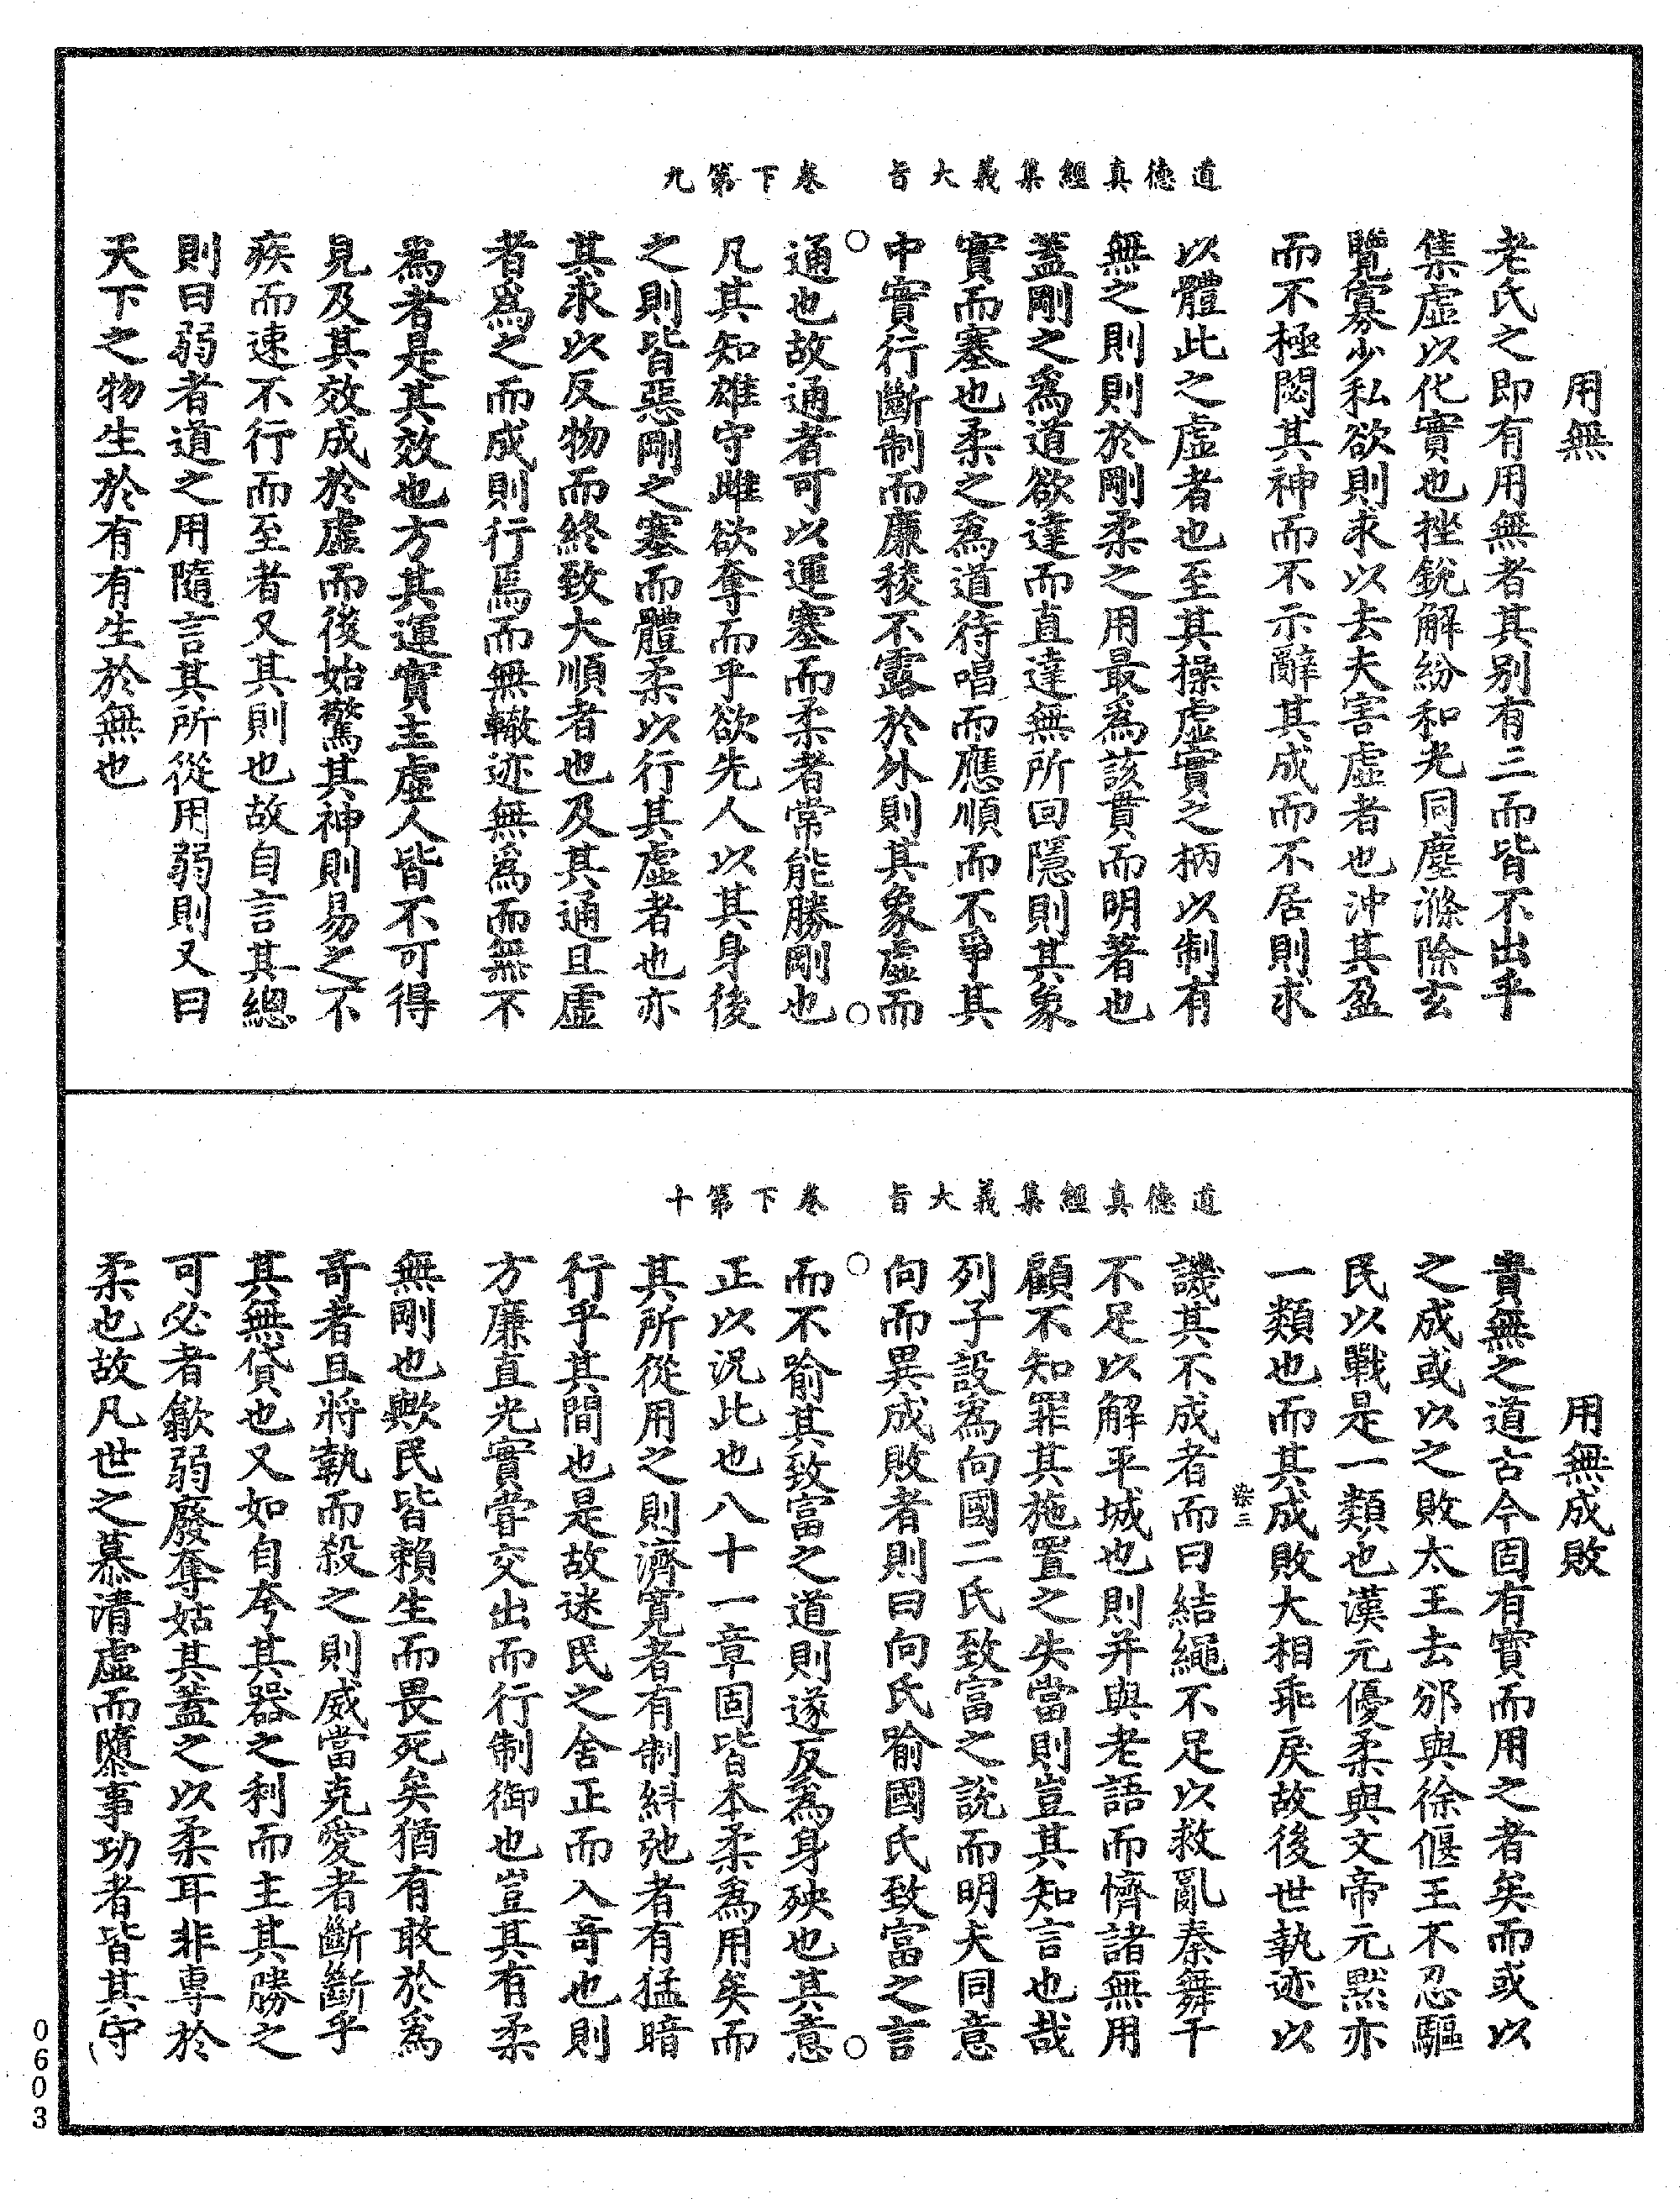 道德真經集義大旨　卷下第九
用無
老氏之即有用無者其别有三而皆不出乎
集虛以化實也挫銳解紛和光同塵滌除玄
覽寡少私欲則求以去夫害虛者也沖其盈
而不極閟其神而不示辭其成而不居則求
以體此之虛者也至其操虛實之柄以制有
無之則則於剛柔之用最爲該貫而明著也
蓋剛之爲道欲達而直達無所回隱則其象
實而塞也柔之爲道待唱而應順而不爭其
中實行斷制而廉稜不露於外則其象虛而
通也故通者可以運塞而柔者常能勝剛也
凡其知雄守雌欲奪而乎欲先人以其身後
之則皆惡剛之塞而體柔以行其虛者也亦
其求以反物而終致大順者也及其通且虛
者爲之而成則行焉而無轍迹無爲而無不
爲者是其效也方其運實主虛人皆不可得
見及其效成於虛而後始驚其神則易之不
疾而速不行而至者又其則也故自言其總
則曰弱者道之用隨言其所從用弱則又曰
天下之物生於有有生於無也
道德真經集義大旨　卷下第十
用無成敗
貴無之道古今固有實而用之者矣而或以
之成或以之敗太王去邠與徐偃王不忍驅
民以戰是一類也漢元優柔與文帝元默亦
一類也而其成敗大相乖戾故後世執迹以
染三
譏其不成者而曰結繩不足以救亂秦舞干
不足以解平城也則并與老語而懠諸無用
顧不知罪其施置之失當則豈其知言也哉
列子設爲向國二氏致富之說而明夫同意
向而異成敗者則曰向氏喻國氏致富之言
而不喻其致富之道則遂反爲身殃也其意
正以況此也八十一章固皆本柔爲用矣而
其所從用之則濟寬者有制糾弛者有猛暗
行乎其間也是故迷民之舍正而入奇也則
方廉直光實嘗交出而行制御也豈其有柔
無剛也歟民皆賴生而畏死矣猶有敢於爲
奇者且將執而殺之則威當克愛者斷斷乎
其無貸也又如自夸其器之利而主其勝之
可必者歙弱廢奪姑其蓋之以柔耳非專於
柔也故凡世之慕清虛而隳事功者皆其守
0603